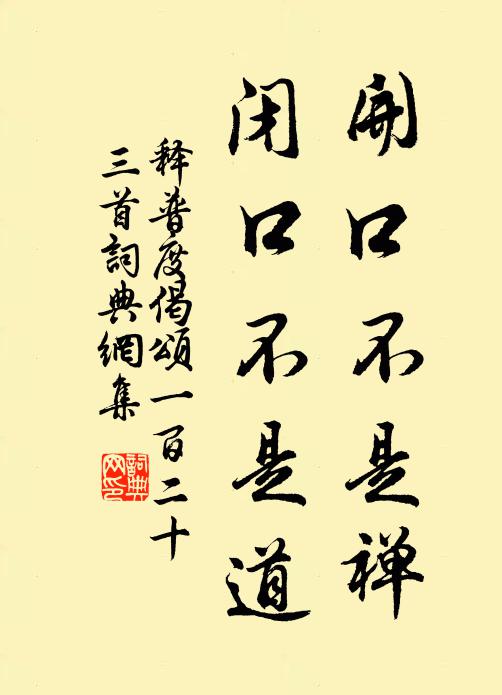 開口不是禅
闭口不是道
释普度偈頌一百二十
三首詞典網集
詞典
网印